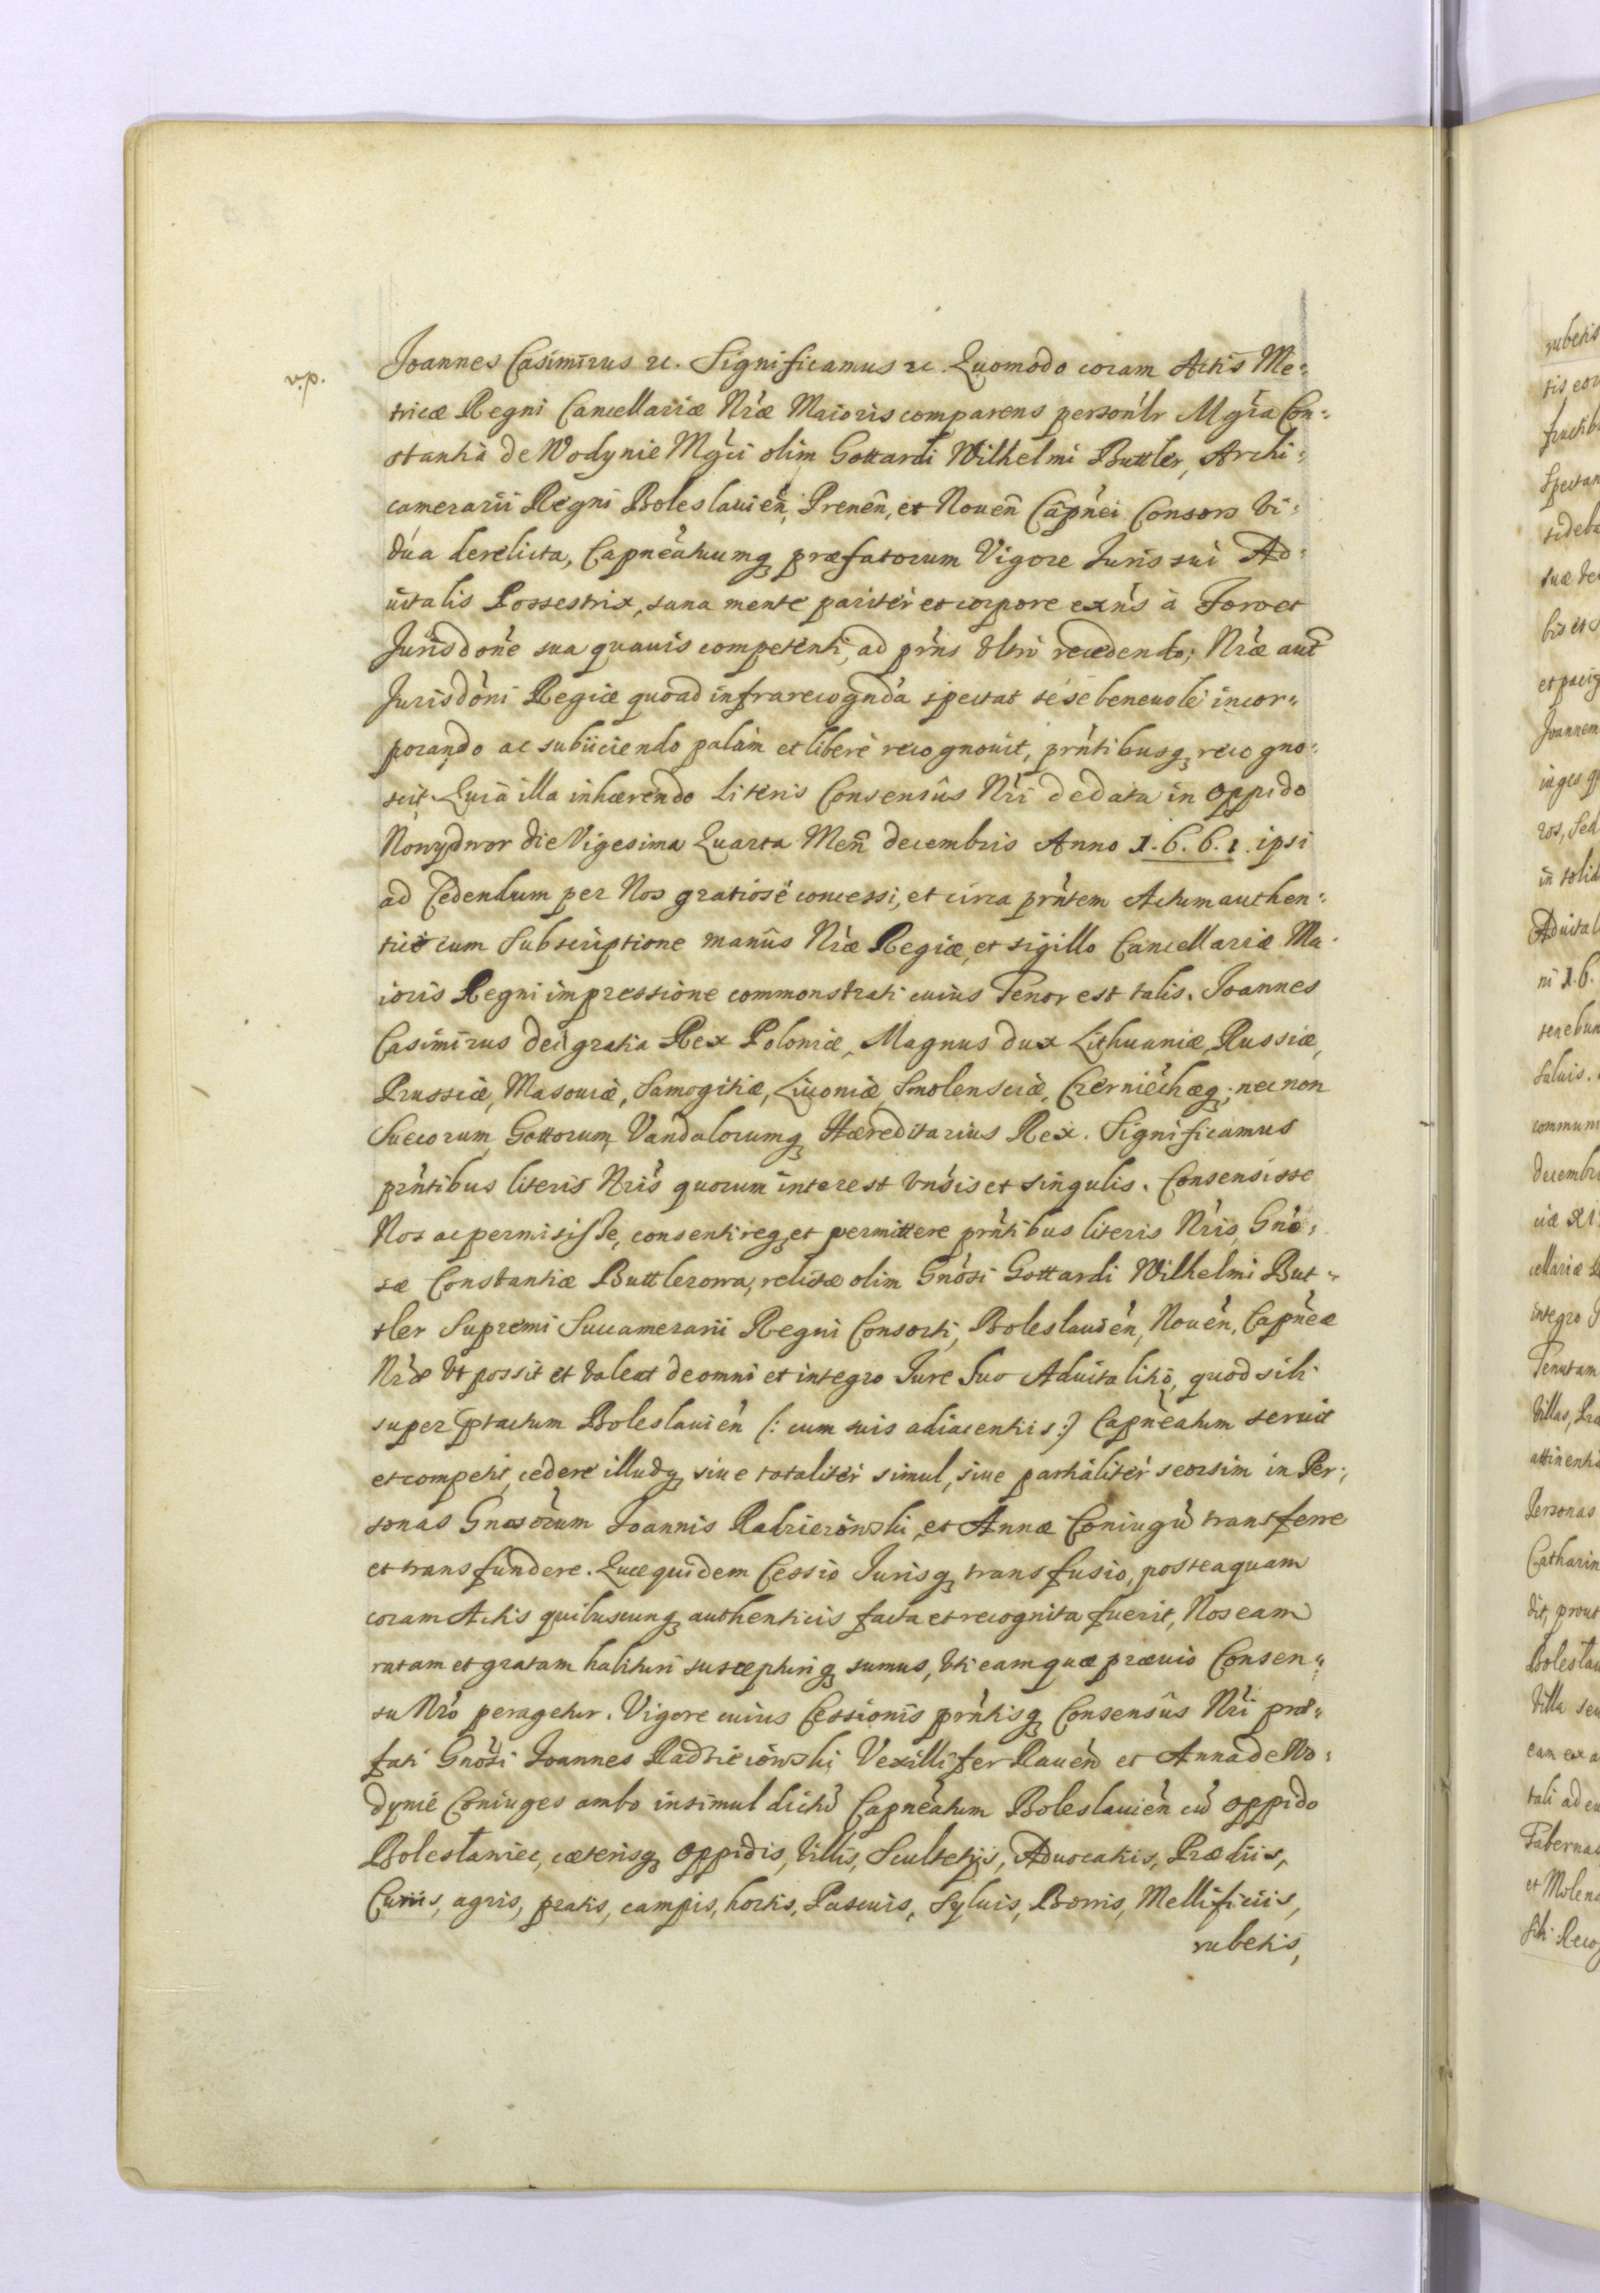 v.p.
Joannes Casimirus &c. Significamus &c. Quomodo coram Actis Me-
tricæ Regni Cancellariæ Nræ Maioris comparens personlr Mgca Con-
stantia de Wodynie Mgci olim Gottardi Wilhelmi Buttler, Archi-
camerarii Regni Boleslauien, Prenen, et Nouen Capnei Consors Vi-
dua derelicta, Capneatuumq præfatorum Vigore Juris sui Ad-
uitalis Possestrix, sana mente pariter et corpore exns à Foro et
Jurisdone sua quauis competenti, ad prns Vltri recedendo; Nræ aut
Jurisdoni Regiæ quoad infrarecognda spectat sese beneuole incor-
porando ac subiiciendo palam et libere recognouit, prntibusq recogno-
scit. Quia illa inhærendo Literis Consensûs Nri de data in Oppido
Nowydwor die Vigesima Quarta Men decembris Anno 1.6.6.1. ipsi
ad Cedendum per Nos gratiosè concessi, et circa prntem Actum authen-
tice cum Subscriptione manûs Nræ Regiæ, et sigillo Cancellariæ Ma-
ioris Regni impressione commonstrati cuius Tenor est talis. Joannes
Casimirus dei gratia Rex Poloniæ, Magnus dux Lithuaniæ, Russiæ,
Prussiæ, Masouiæ, Samogitiæ, Liuoniæ, Smolensciæ, Czerniechæq; necnon
Suecorum, Gottorum, Vandalorumq Hæreditarius Rex. Significamus
prntibus literis Nris quorum interest Vnsis et singulis. Consensisse
Nos ac permisisse, consentireq et permittere prntibus literis Nris, Gno-
sæ Constantiæ Buttlerowa, relictæ olim Gnosi Gottardi Wilhelmi But-
tler Supremi Succamerarii Regni Consorti, Boleslauien, Nouen, Capneæ
Nræ Vt possit et Valeat de omni et integro Jure Suo Aduitalitio, quod sibi
super ptactum Boleslauien (: cum suis adiacentiis :) Capneatum seruit
et competit, cedere illudq siue totaliter simul, siue partialiter seorsim in Per-
sonas Gnosorum Joannis Radzieiowski, et Annæ Coniugu transferre
et transfundere. Quæquidem Cessio Jurisq transfusio, posteaquam
coram Actis quibuscunq authenticis facta et recognita fuerit, Nos eam
ratam et gratam habituri suscepturiq sumus, Vti eam quæ præuio Consen-
su Nro peragetur. Vigore cuius Cessionis prntisq Consensûs Nri præ-
fati Gnosi Joannes Radzieiowski Vexillifer Rauen et Anna de Wo-
dynie Coniuges ambo insimul dictu Capneatum Boleslauien cu Oppido
Bolesławiec, cæterisq Oppidis, Villis, Scultetijs, Aduocatiis, Prædiis,
Curiis, agris, pratis, campis, hortis, Pascuis, Syluis, Borris, Mellificiis,
rubetis,